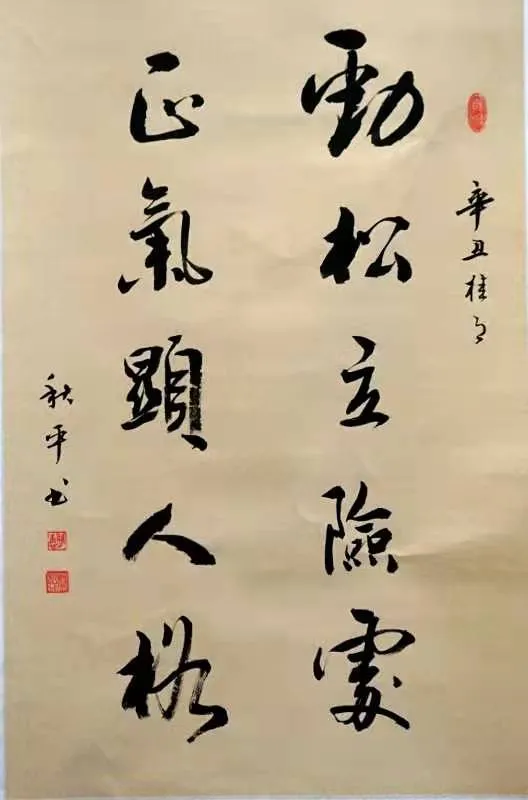 辛丑桂月
劲松立險處
正氣顯人格
秋平书